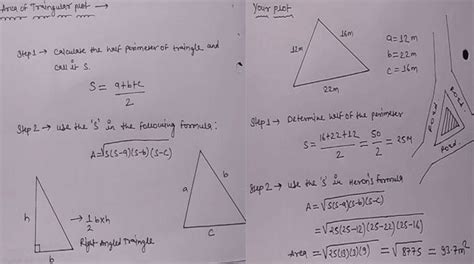 Area of Traingular plot →
Step 1 → Calculate the half perimeter of traingle and
call it S.
S = a+b+c
2
Step 2 → Use the 'S' in the following formula:
A=√S(S-a)(S-b)(S-c)
h
→ 1/2 bxh
Right Angled Traingle
b
a
b
c
Your plot
12m
16m
22m
a=12m
b=22m
c=16m
Step 1 → Determine half of the perimeter
S = 16+22+12 / 2 = 50 / 2 = 25M
Road
Road
Road
Step 2 → Use the 'S' in Heron's formula
A = √S(S-a)(S-b)(S-c)
= √25(25-12)(25-22)(25-16)
Area = √25(13)(3)(9) = √8775 = 93.7m²